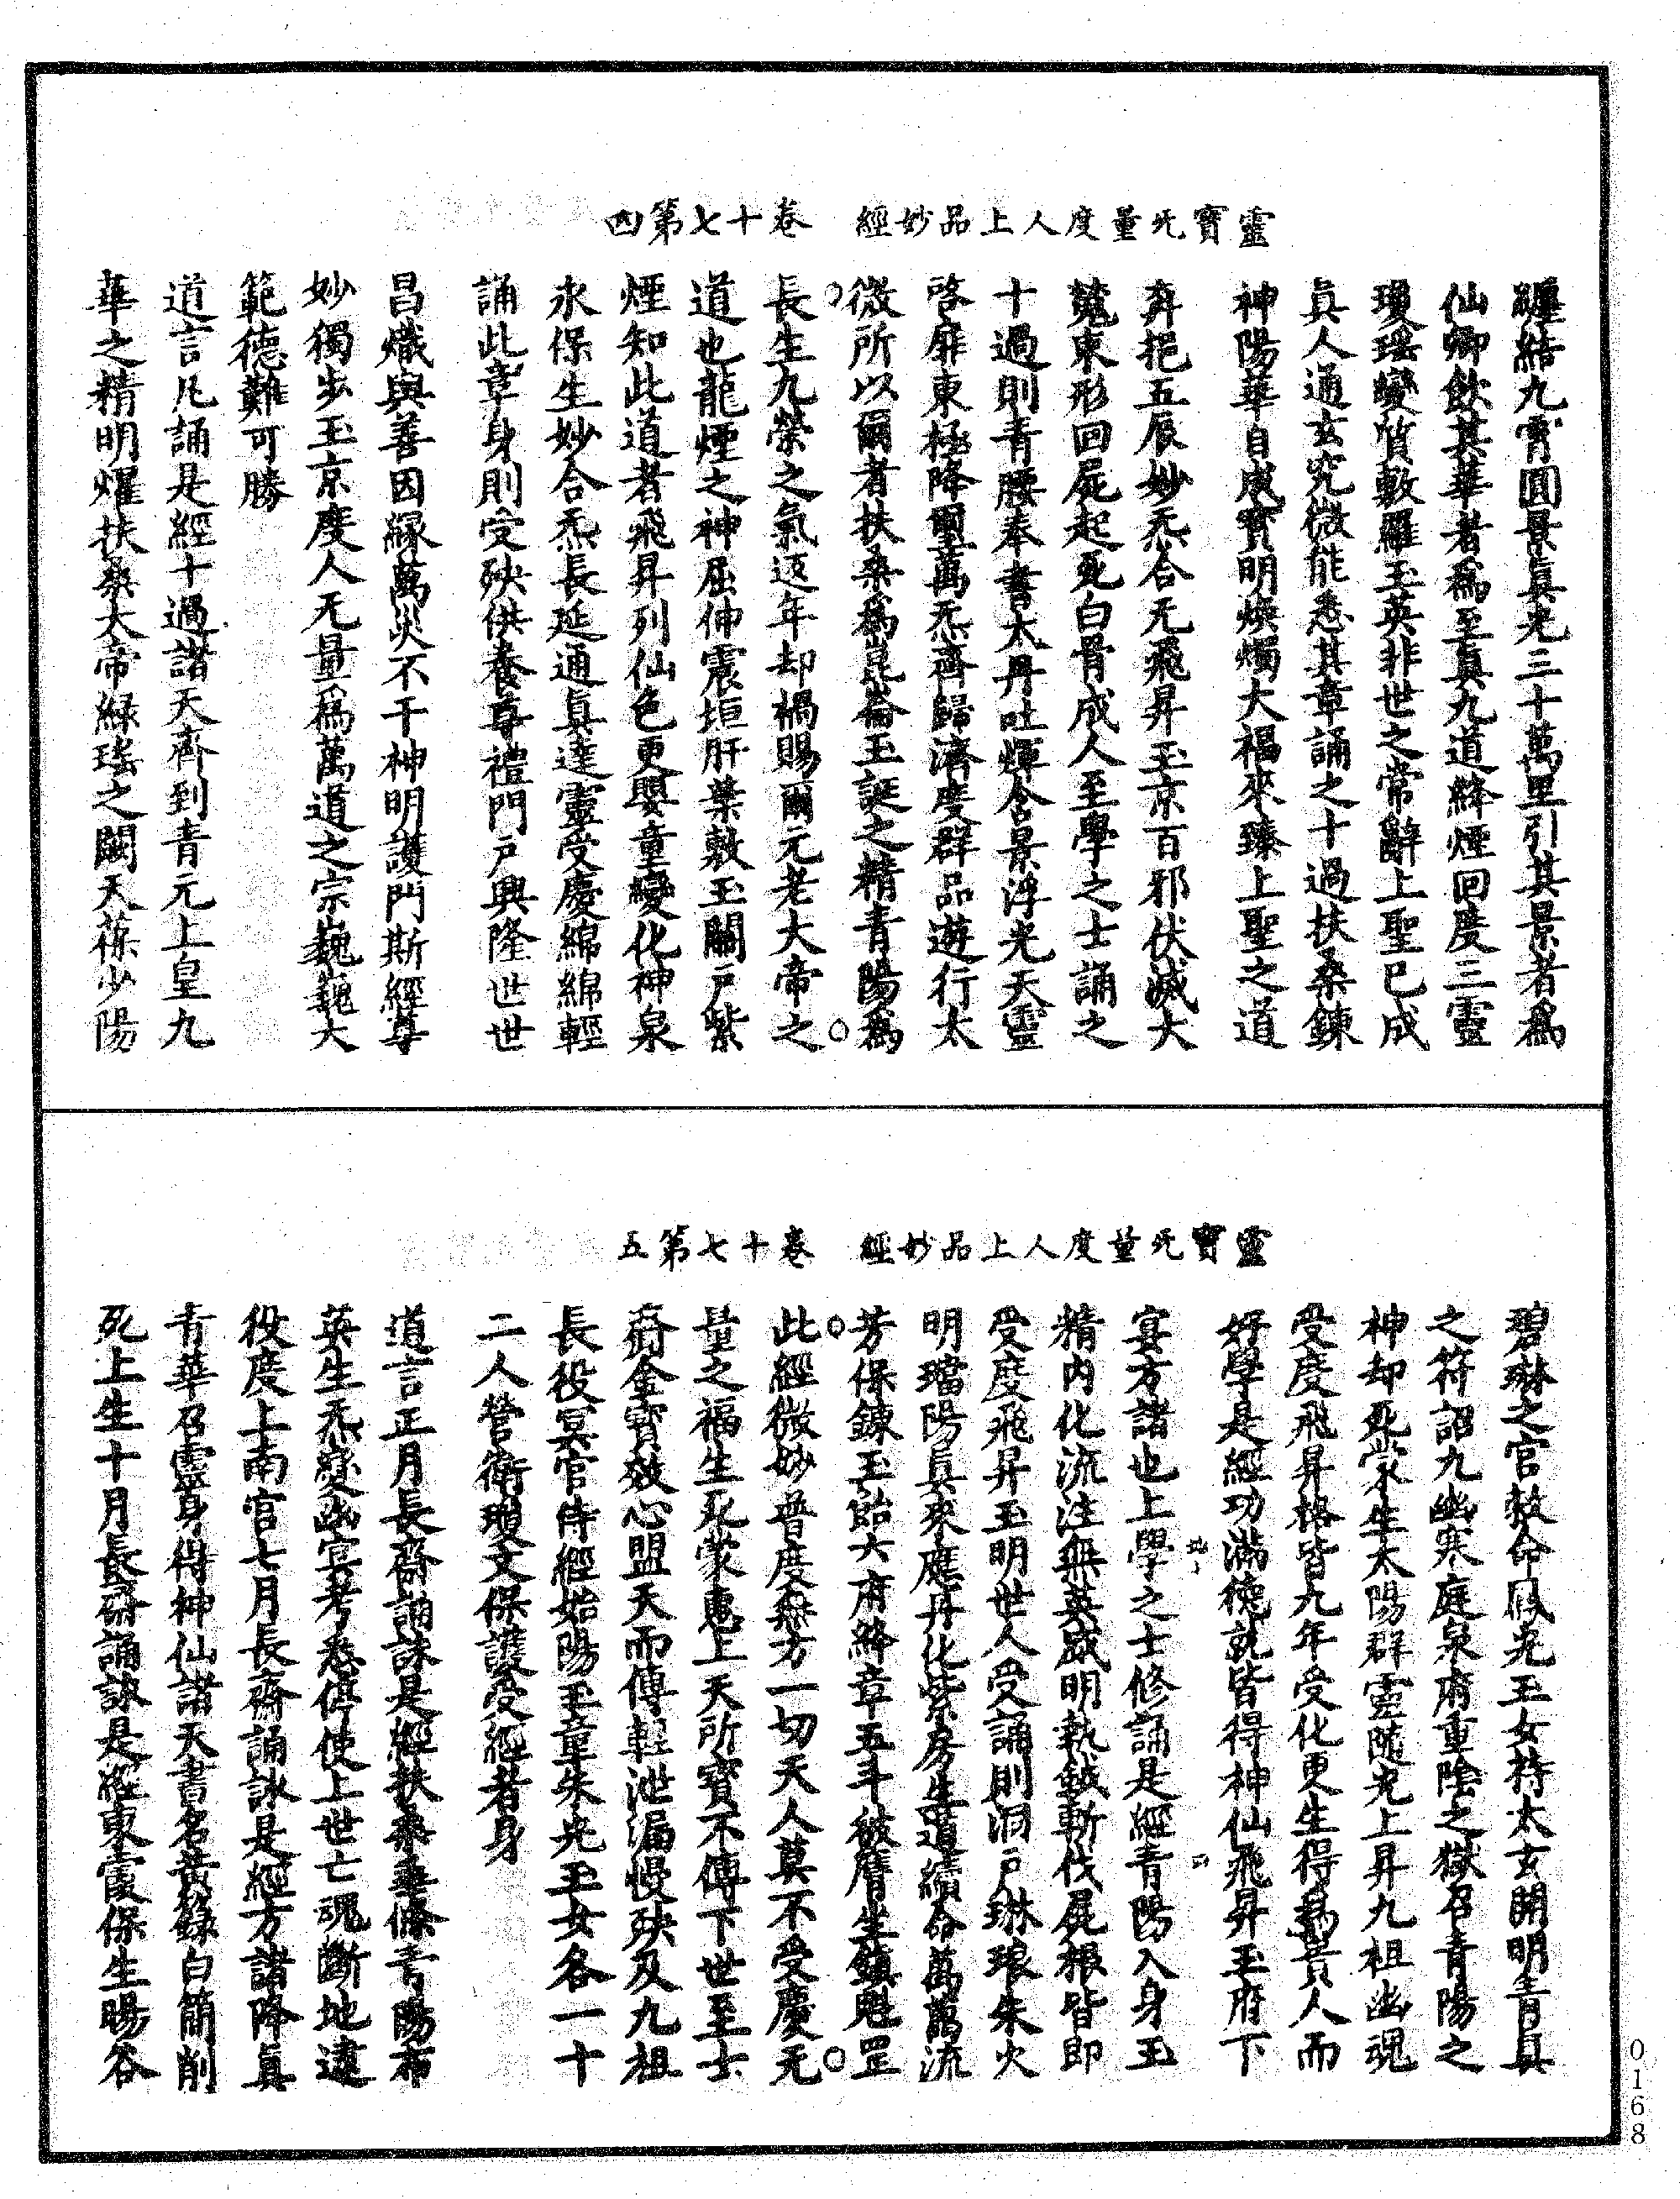 靈寶旡量度人上品妙經　卷十七第四
纏結九霄圓景眞光三十萬里引其景者爲
仙卿飲其華者爲至眞九道絳煙回度三靈
瓊瑶變質敷羅玉英非世之常辭上聖已成
眞人通玄究微能悉其章誦之十過扶桑鍊
神陽華自成寶明煥燭大福來臻上聖之道
奔挹五辰妙炁合无飛昇玉京百邪伏滅大
萬東形回屍起死白骨成人至學之士誦之
十過則青腰奉書太丹吐煇含景浮光天靈
啓扉東極降璽萬炁齊歸濟度群品遊行太
微所以爾者扶桑爲崑崙玉誕之精青陽爲
長生九榮之氣返年却禍賜爾元老大帝之
道也龍煙之神屈伸震垣肝葉敷玉關戶紫
煙知此道者飛昇列仙色更嬰童變化神泉
永保生妙合炁長延通眞達靈受慶綿綿輕
誦此章身則受殃供養尊禮門戶興隆世世
昌熾與善因緣萬災不干神明護門斯經尊
妙獨步玉京度人无量爲萬道之宗巍巍大
範德難可勝
道言凡誦是經十過諸天齊到青元上皇九
華之精明耀扶桑大帝緑瑤之闕天葆少陽
靈寶旡量度人上品妙經　卷十七第五
碧琳之官敕命風光玉女持太玄開明青眞
之符詔九幽寒庭泉府重陰之獄召青陽之
神却死蒙生太陽群靈隨光上昇九祖幽魂
受度飛昇格皆九年受化更生得爲貴人而
好學是經功滿德就皆得神仙飛昇玉府下
宴方諸也上學之士修誦是經青陽入身玉
精内化流注無英威明執鉞斬伐屍根皆即
受度飛昇玉明世人受誦則洞戶琳琅朱火
明璫陽眞來應丹化紫房生道續命萬萬流
芳保鍊玉飴六府絳章五斗被膺生鎮魁罡
此經微妙普度無方一切天人莫不受慶无
量之福生死蒙惠上天所寶不傳下世至士
齎金寶效心盟天而傳輕泄漏慢殃及九祖
長役冥官侍經始陽玉童朱光玉女各一十
二人營衛瓊文保護受經者身
道言正月長齋誦詠是經扶桑垂條青陽布
英生炁變幽冥考悉停使上世亡魂斷地逮
役度上南宮七月長齋誦詠是經方諸降眞
青華召靈身得神仙諸天書名黄籙白簡削
死上生十月長齋誦詠是經東霞保生暘谷
0168